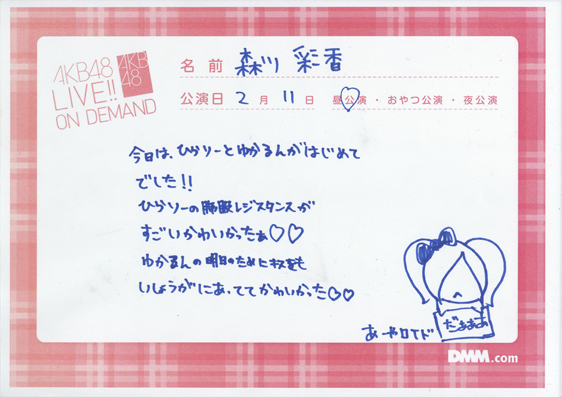 AKB48
LIVE!!
ON DEMAND
AKB
48
名前 森川 彩香
公演日 2月 11日 昼公演・おやつ公演・夜公演
今日は、ひらりーとゆかるんがはじめて
でした!!
ひらりーの腕獣レジスタンスが
すごいかわいかったぁ♡♡
ゆかるんの明日のためにキスをも
いしょうがにあってて かわいかった♡♡
だぁぁぁ
あーやロイド
DMM.com